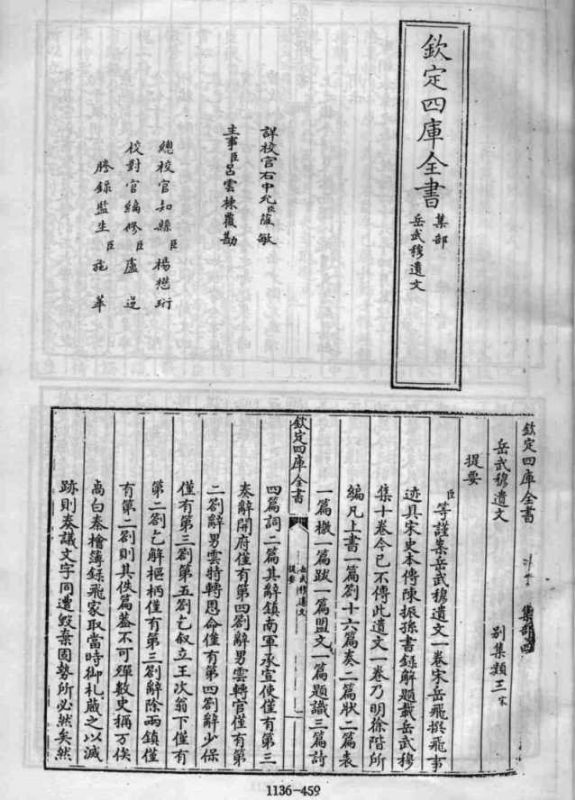 欽定四庫全書
集部
岳武穆遺文
詳校官右中允臣薩敏
主事臣呂雲棟覆勘
總校官知縣臣楊懋珩
校對官編修臣盧遂
謄錄監生臣施華
欽定四庫全書
集部四
岳武穆遺文
別集類三宋
提要
臣等謹案岳武穆遺文一卷宋岳飛撰飛事
迹具宋史本傳陳振孫書錄解題載岳武穆
集十卷今已不傳此遺文一卷乃明徐階所
編凡上書一篇劄十六篇奏二篇狀二篇表
一篇檄一篇跋一篇盟文一篇題識三篇詩
欽定四庫全書
岳武穆遺文
提要
四篇詞二篇其辭鎮南軍承宣使僅有第三
奏辭開府僅有第四劄辭男雲轉官僅有第
二劄辭男雲特轉恩命僅有第四劄辭少保
僅有第三劄第五劄乞叙立王次翁下僅有
第二劄乞解樞柄僅有第三劄辭除兩鎮僅
有第二劄則其佚篇蓋不可殫數史稱万俟
卨白秦檜簿錄飛家取當時御札藏之以滅
跡則奏議文字同遭毀棄固勢所必然矣然
1136-459